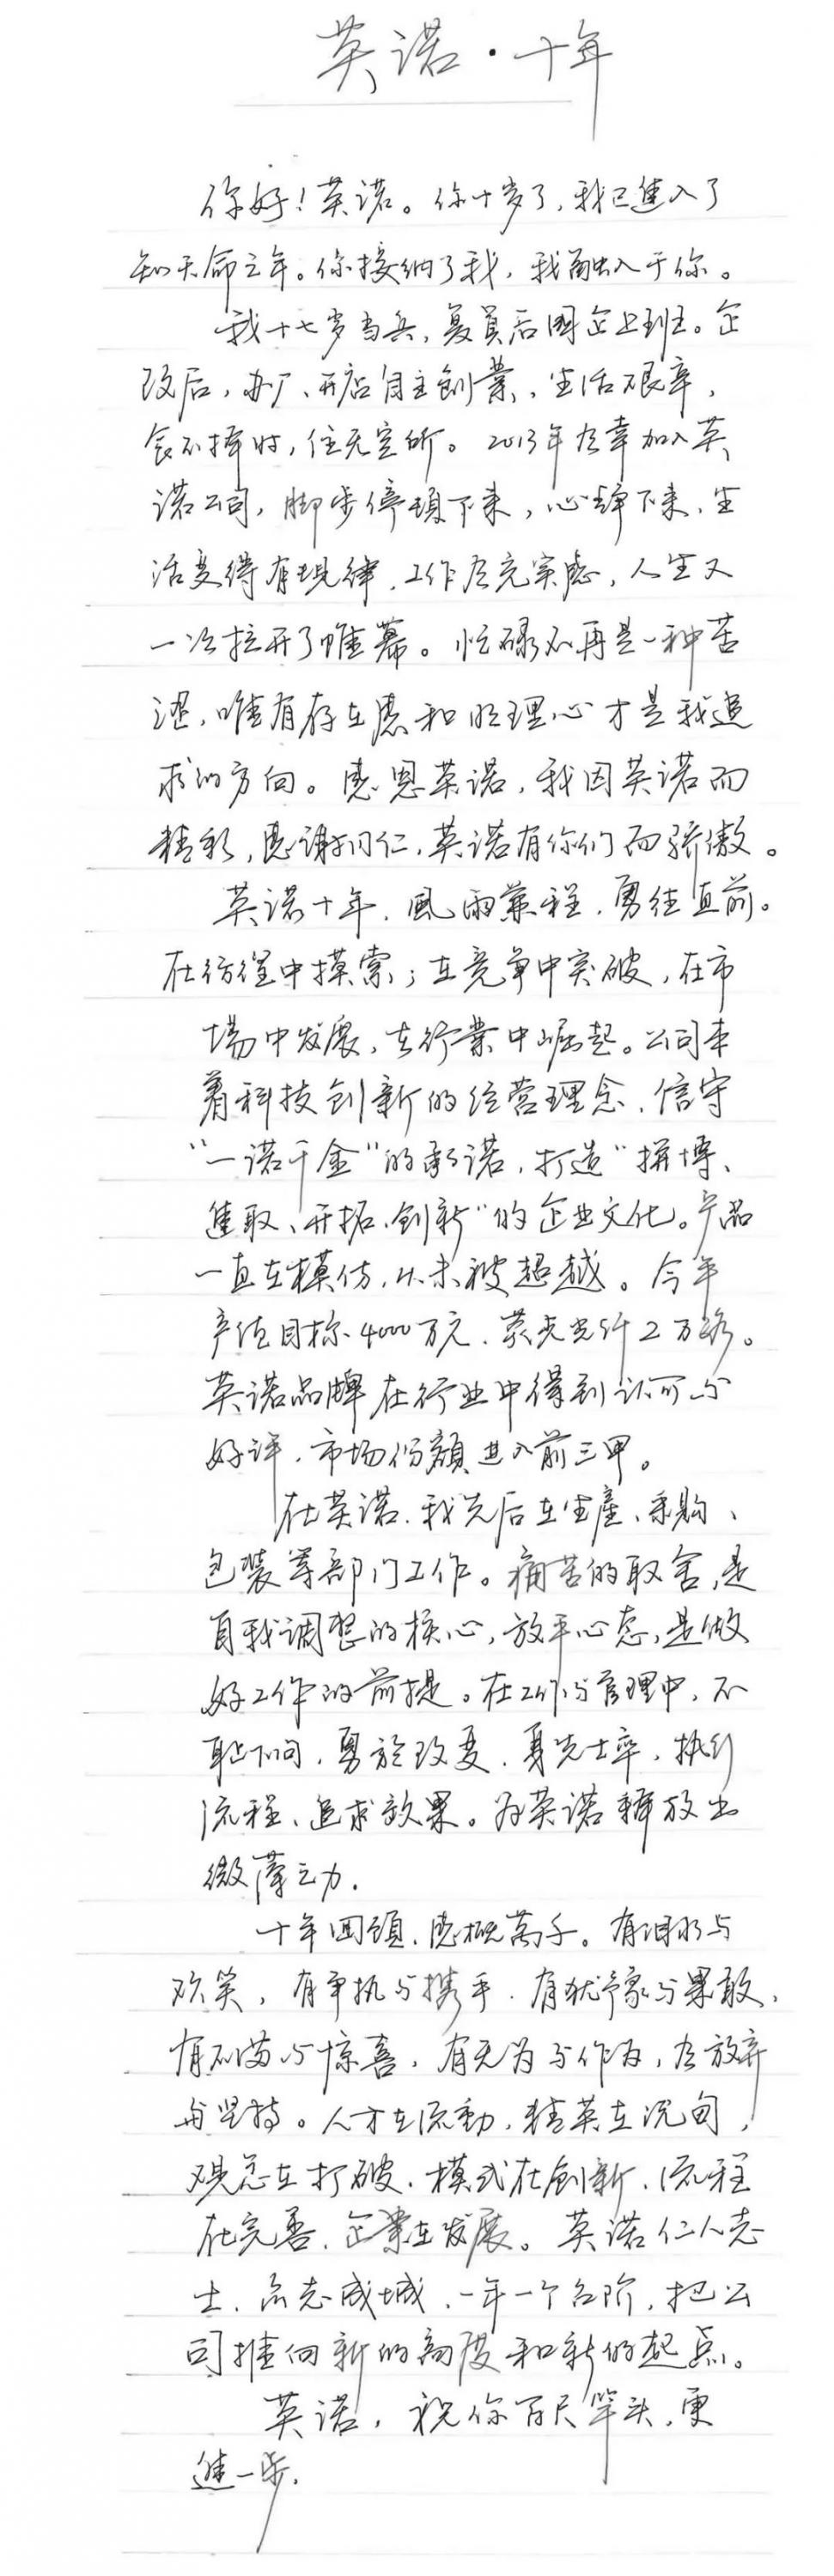 英诺·十年
你好！英诺。你十岁了，我已進入了
知天命之年。你接纳了我，我融入于你。
我十七岁当兵，复員后國企上班。企
改后，办厂、开店自主創業，生活艰辛，
食不择时，住无定所。2013年有幸加入英
诺公司，脚步停頓下来，心靜下来，生
活变得有規律，工作有充実感，人生又
一次拉开了帷幕。忙碌不再是一种苦
涩，唯有存在感和处理心才是我追
求的方向。感恩英诺，我因英诺而
精彩，感謝同仁，英诺有你们而骄傲。
英诺十年，風雨兼程，勇往直前。
在彷徨中摸索；在竞争中突破，在市
場中发展，在行業中崛起。公司本
着科技创新的经营理念，信守
“一诺千金”的承诺，打造“拼博、
進取、开拓、创新”的企业文化。产品
一直在模仿，从未被超越。今年
产值目标4000万元，荧光光纤2万路。
英诺品牌在行业中得到认可与
好评，市场份額进入前三甲。
在英诺，我先后在生產、采购、
包装等部门工作。痛苦的取舍，是
自我调整的核心，放平心态，是做
好工作的前提。在工作与管理中，不
耻下问，勇於改变，身先士卒，执行
流程、追求效果。为英诺释放出
微薄之力。
十年回頭，感概萬千。有泪水与
欢笑，有争执与携手，有犹豫与果敢，
有不满与惊喜，有无为与作为，有放弃
与坚持。人才在流動，精英在沉甸，
观念在打破，模式在創新，流程
在完善，企業在发展。英诺仁人志
士，众志成城，一年一个台阶，把公
司推向新的高度和新的起点。
英诺，祝你百尺竿头，更
進一步。